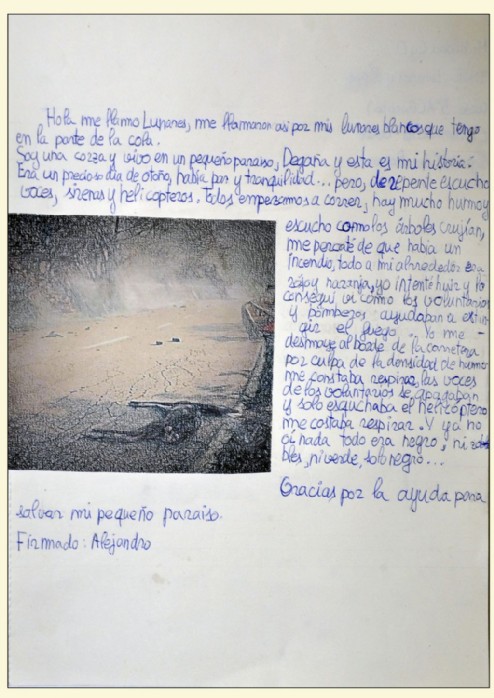 Hola me llamo Lunares, me llamaron asi por mis lunares blancos que tengo
en la parte de la cola.
Soy una corza y vivo en un pequeño paraiso, Degaña y esta es mi historia:
Era un precioso dia de otoño, habia paz y tranquilidad... pero, de repente escucho
voces, sirenas y helicopteros. Todos empezamos a correr, hay mucho humo y
escucho como los árboles crujian,
me percaté de que habia un
incendio, todo a mi alrrededor era
rojo y naranja, yo intenté huir y lo
consegui, vi como los voluntarios
y bomberos ayudaban a extin-
guir el fuego... Yo me -
desmaye al borde de la carretera
por culpa de la densidad de humo
me constaba respirar, las voces
de los voluntarios se apagaban
y solo esquchaba el helicoptero
me costaba respirar. Y ya no
oi nada todo era negro, ni
bles, ni verde, solo negro...
Gracias por la ayuda para
salvar mi pequeño paraiso.
Firmado: Alejandro